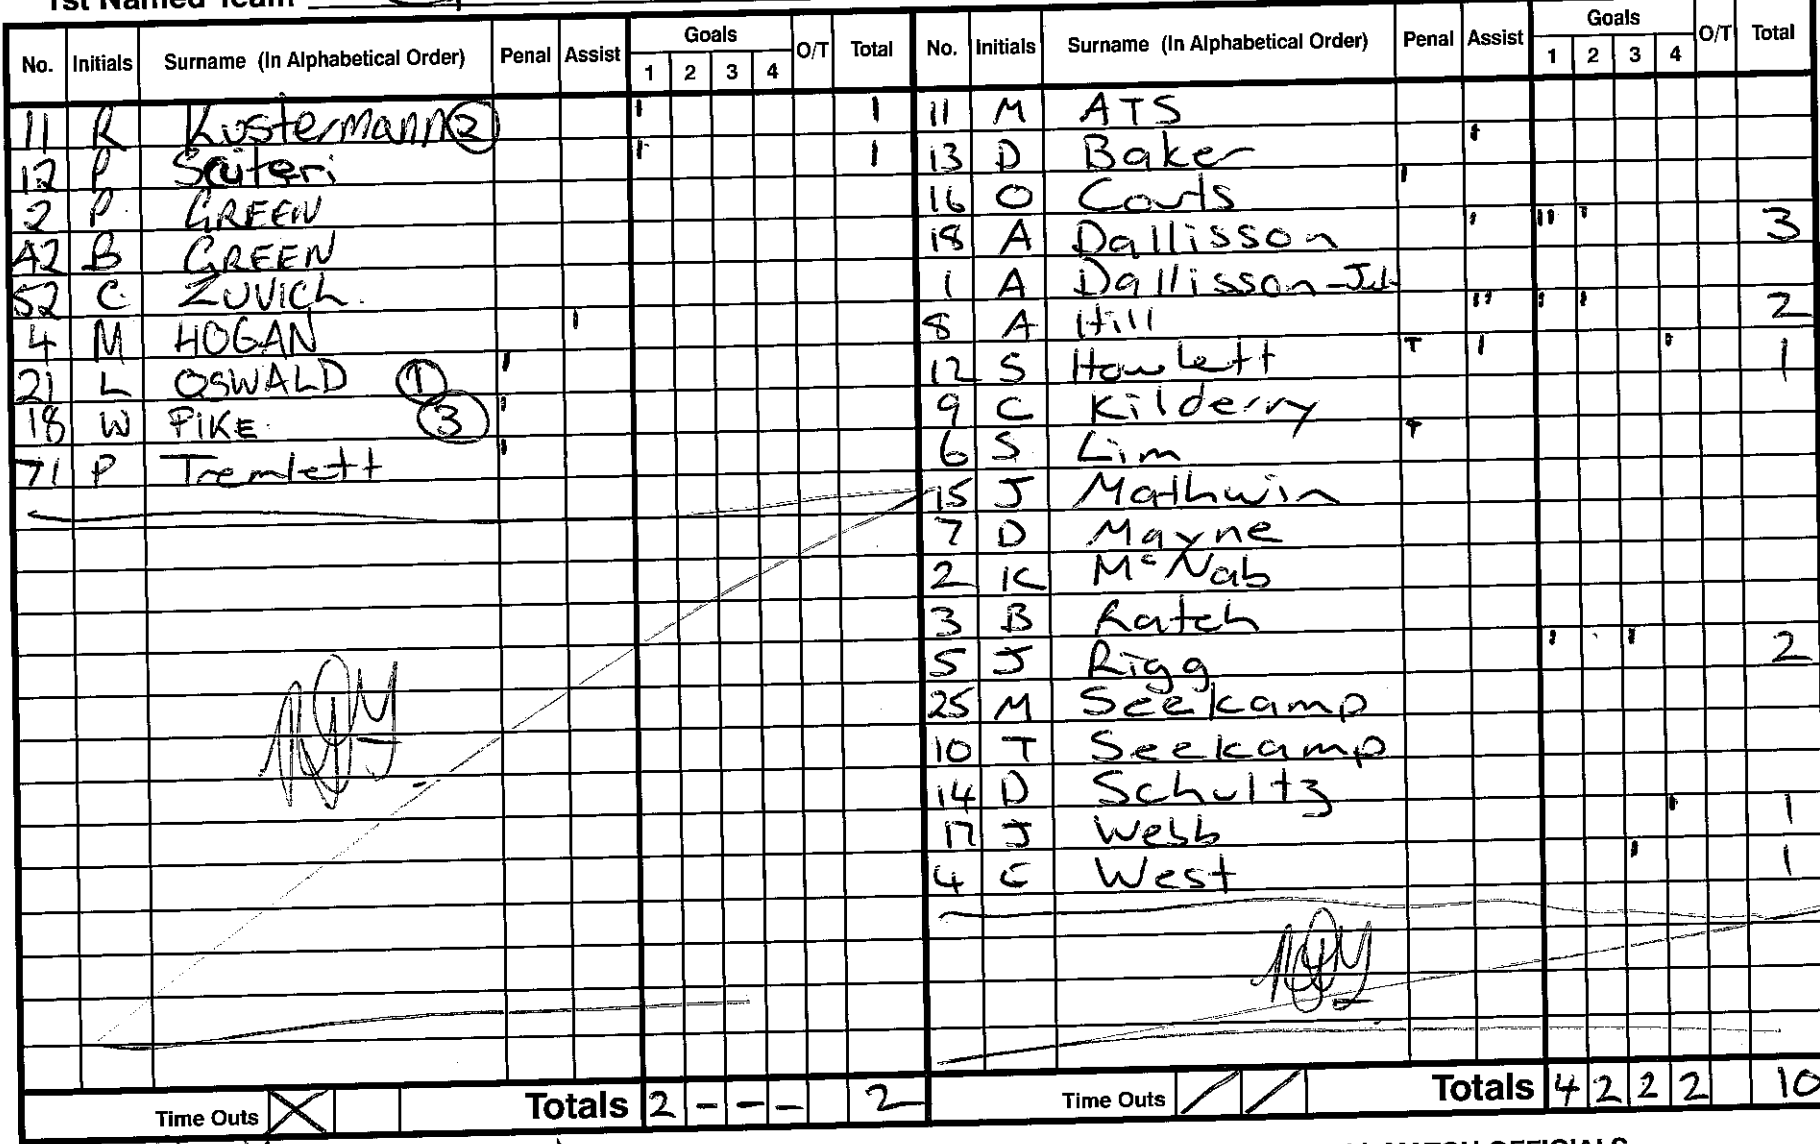 1st Named Team
No. Initials Surname (In Alphabetical Order) Penal Assist Goals 1 2 3 4 O/T Total
11 R Kustermann 2 1
12 P Sciteri 1
2 P GREEN
A2 B GREEN
52 C ZUVICH.
4 M HOGAN
21 L OSWALD 1
18 W PIKE 3
71 P Tremlett
Time Outs X Totals 2 - - - 2
No. Initials Surname (In Alphabetical Order) Penal Assist Goals 1 2 3 4 O/T Total
11 M ATS
13 D Baker
16 O
18 A Dallisson 3
1 A Dallisson
8 A Hill 2
12 S Howlett T 1
9 C Kilderry
6 S Lim T
15 J Mathwin
7 D Mayne
2 K McNab
3 B Ratch
5 J Rigg 2
25 M Seekamp
10 T Seekamp
14 D Schultz
17 J Webb 1
4 C West 1
Time Outs / / Totals 4 2 2 2 10
MATCH OFFICIALS